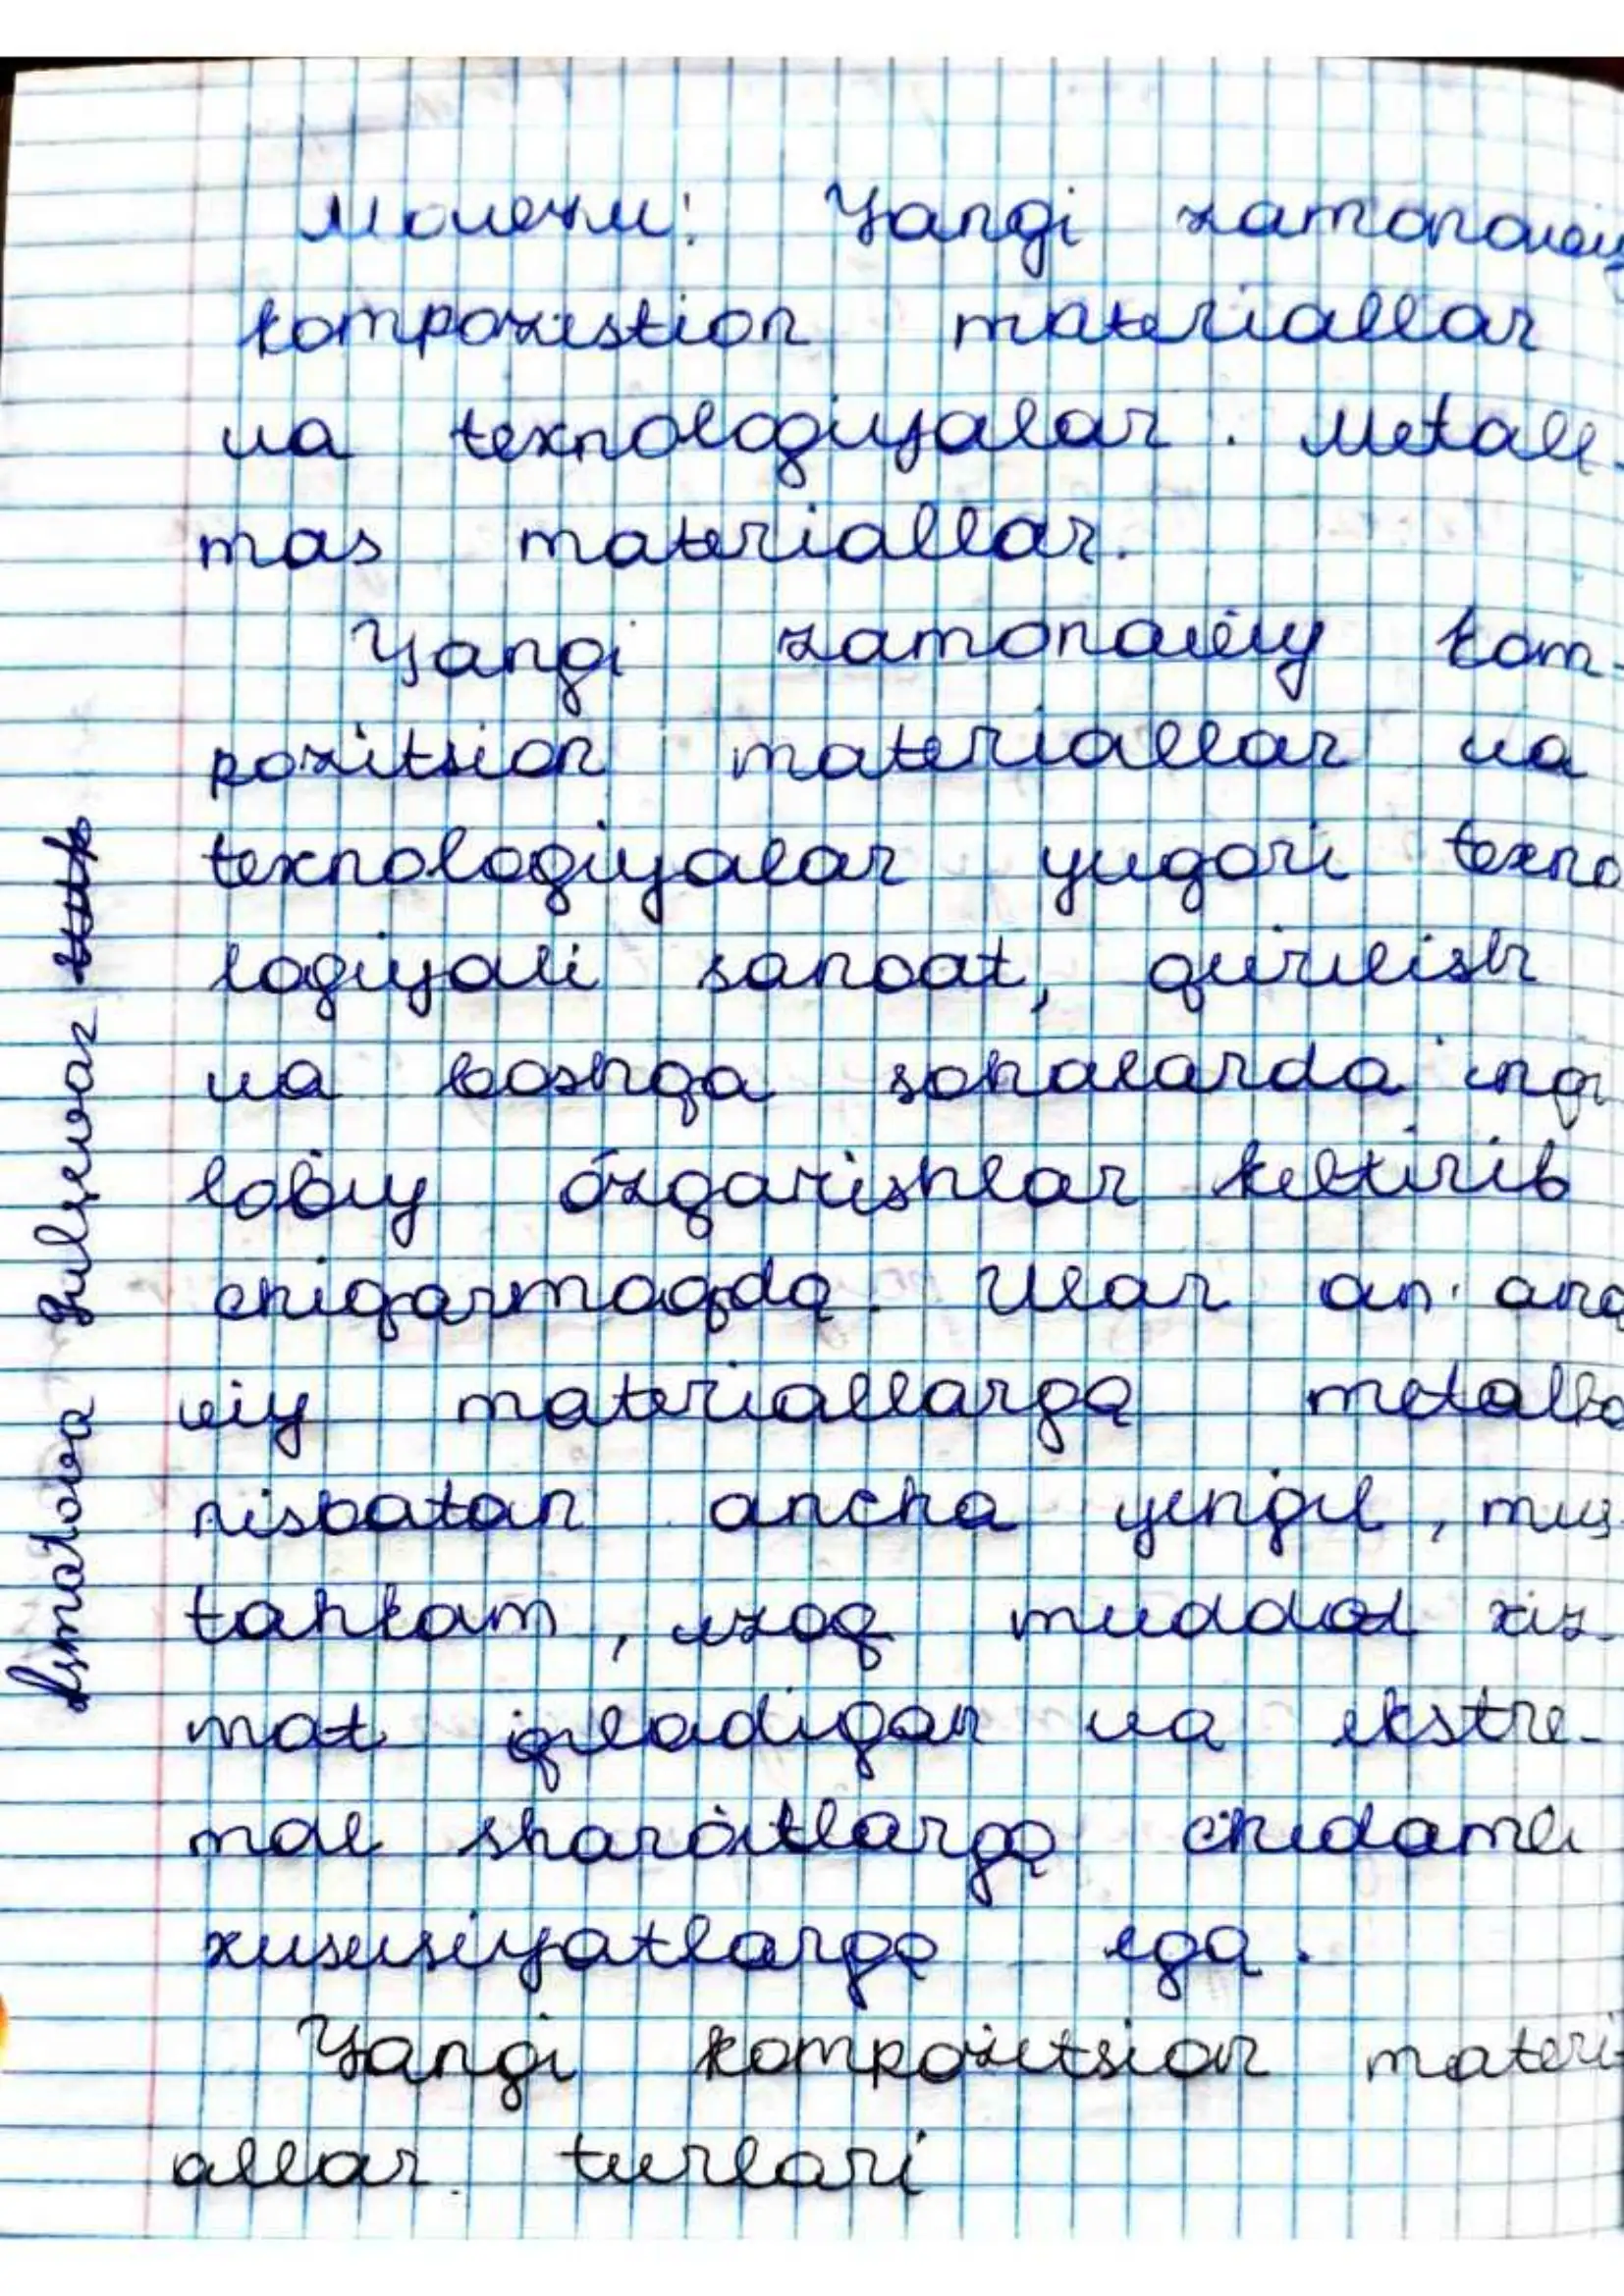 Mavzu: Yangi zamonaviy
kompozistion materiallar
va texnologiyalar. Metall-
mas materiallar.
Yangi zamonaviy kom-
pozitsion materiallar va
texnologiyalar yuqori texno
logiyali sanoat, qurilish
va boshqa sohalarda inqi
lobiy o'zgarishlar keltirib
chiqarmoqda. Ular an'ana
viy materiallarga metallga
nisbatan ancha yengil, mus-
tahkam, uzoq muddat xiz-
mat qiladigan va ekstre-
mal sharoitlarga chidamli
xususiyatlarga ega.
Yangi kompozitsion materi-
allar turlari
Ismatova Gulsevar